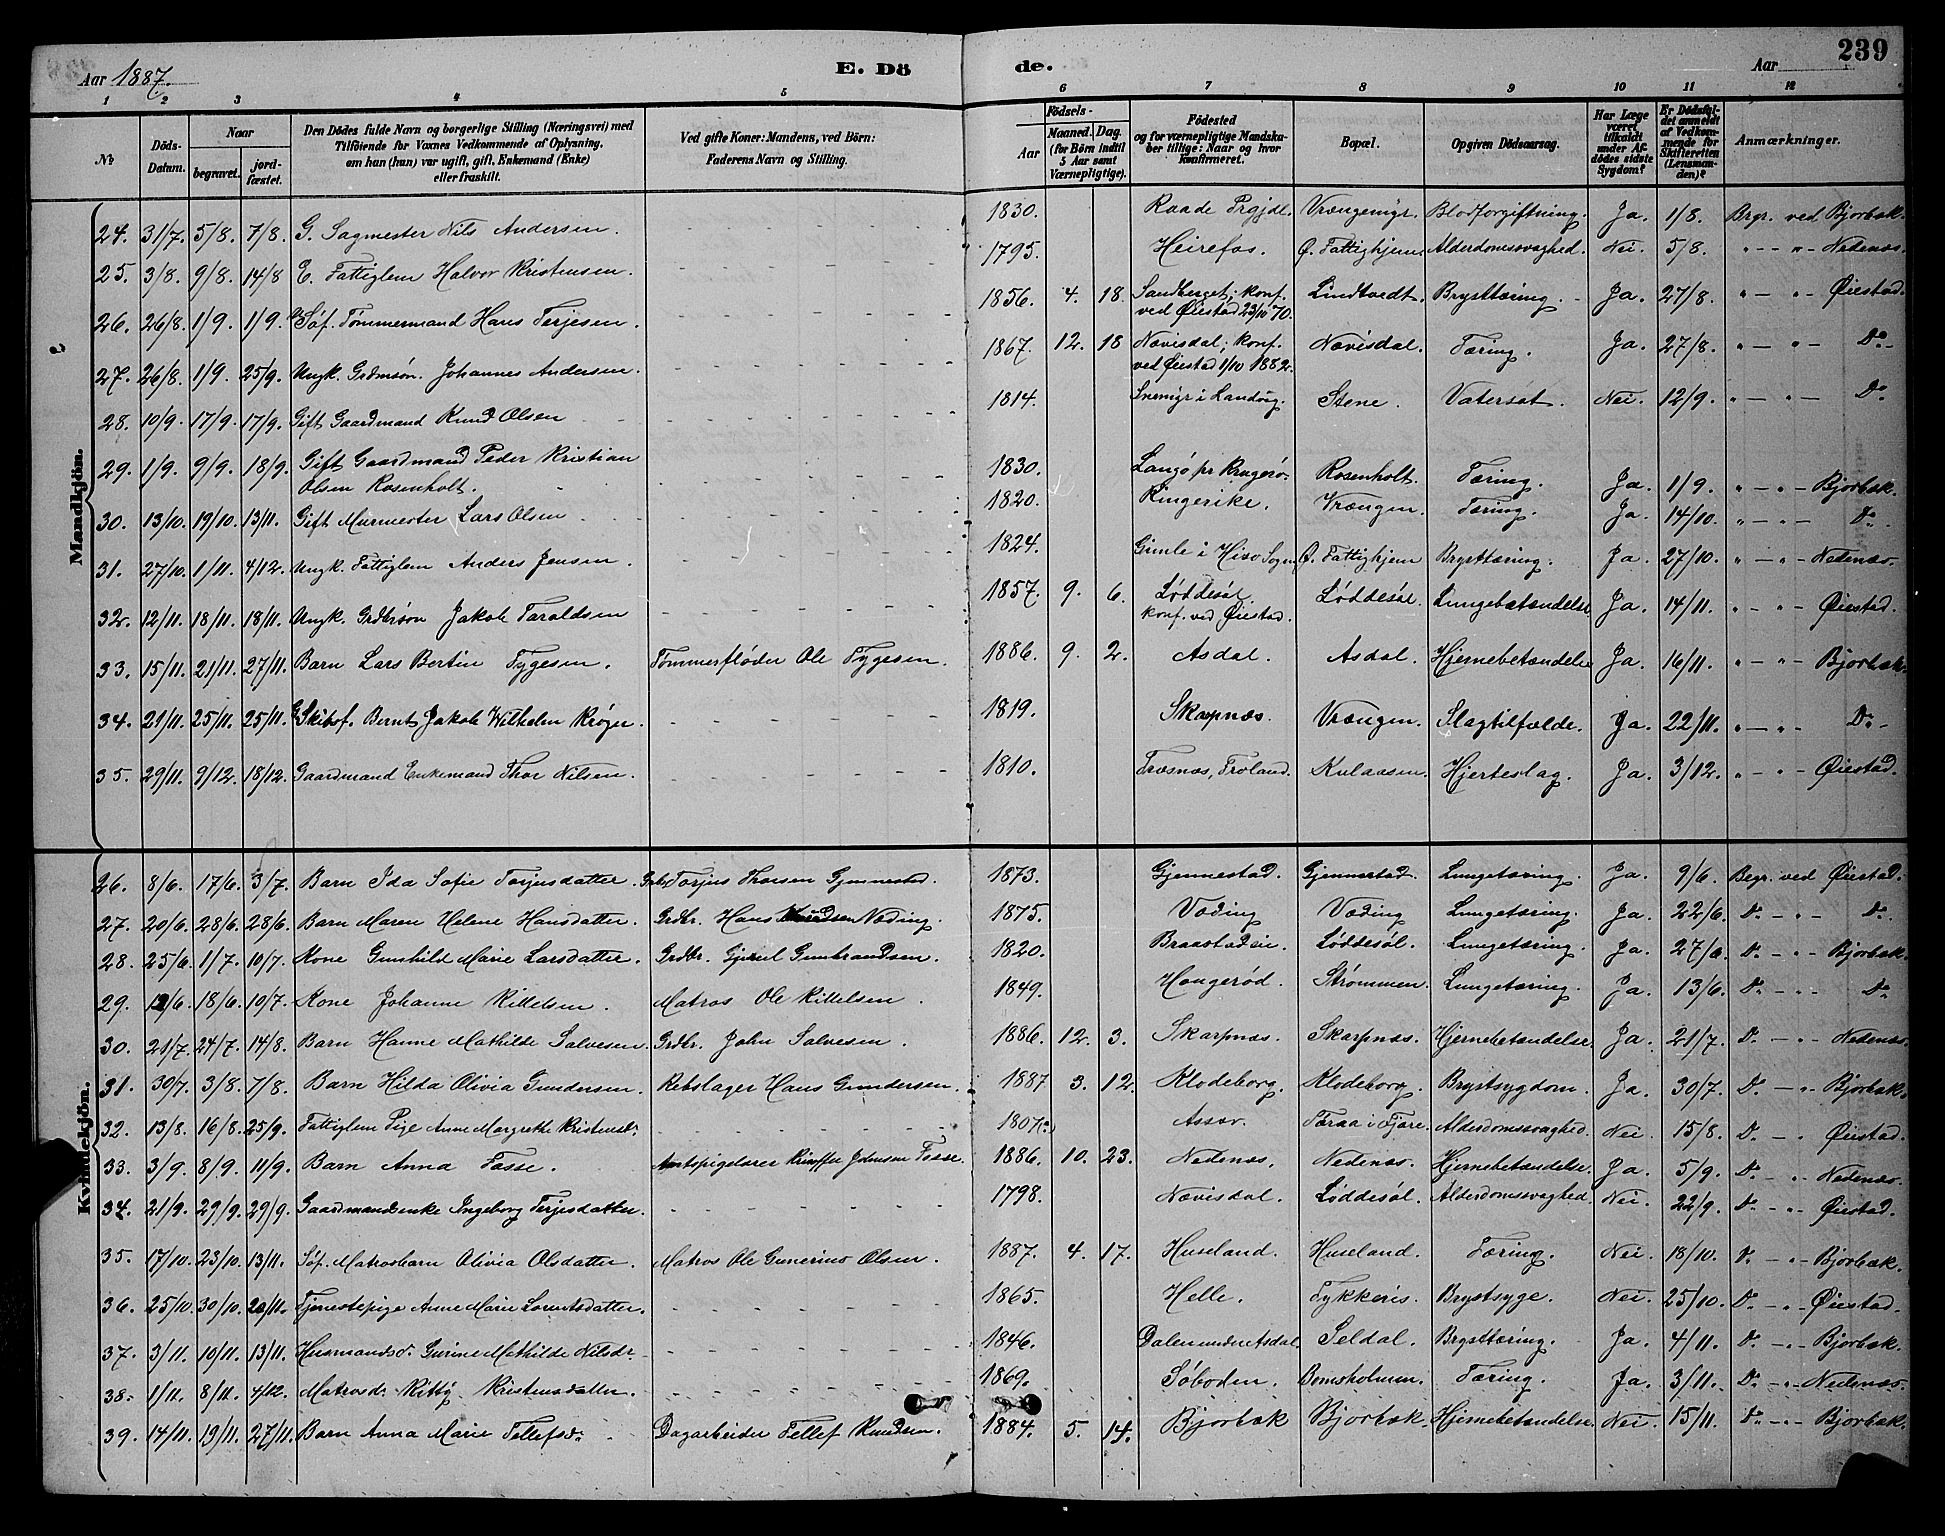 Aar 1887.
E. Dö
de.
Aar
239
1 2 3 4 5 6 7 8 9 10 11 12
No
Döds-Datum.
Naar
begravet.
jordfæstet.
Den Dödes fulde Navn og borgerlige Stilling (Næringsvei) med Tilföiende for Voxnes Vedkommende af Oplysning, om han (hun) var ugift, gift, Enkemand (Enke) eller fraskilt.
Ved gifte Koner: Mandens, ved Börn: Faderens Navn og Stilling.
Födsels-
Aar
Maaned. Dag.
(for Börn indtil 5 Aar samt Værnepligtige).
Födested og for værnepligtige Mandskaber tillige: Naar og hvor Konfirmeret.
Bopæl.
Opgiven Dödsaarsag.
Har Læge været tilkaldt under Afdödes sidste Sygdom?
Er Dödsfaldet anmeldt af Vedkommende for Skifteretten (Lensmanden)?
Anmærkninger.
Mandkjön.
24. 31/7. 5/8. 7/8. G. Sagmester Nils Andersen. 1830. Raade Prgjdl. Vrængemyr. Blodforgiftning. Ja. 1/8. Begr. ved Bjorbæk.
25. 3/8. 9/8. 14/8 E. Fattiglem Halvor Kristensen. 1795. Heirefos. Ø. Fattighjem. Alderdomssvaghed. Nei. 5/8. " — " Nedenæs.
26. 26/8. 1/9. 1/9. G. Søf. Tømmermand Hans Terjesen. 1856. 4. 18. Sandberget; konf. ved Øiestad 23/10 70. Lindtvedt. Brysttæring. Ja. 27/8. " — " Øiestad.
27. 26/8. 1/9. 25/9. Ungk. Grdmsøn. Johannes Andersen. 1867. 12. 18 Nævisdal; konf. ved Øiestad 1/10 1882. Nævisdal. Tæring. Ja. 27/8. " — " Do
28. 10/9. 17/9. 17/9. Gift Gaardmand Knud Olsen 1814. i Landvig. Stene. Vatersot. Nei. 12/9. " — " Do
29. 1/9. 9/9. 18/9. Gift Gaardmand Peder Kristian Olsen Rosenholt. 1830. Langø pr Kragerø. Rosenholt. Tæring. Ja. 1/9. " — " Bjorbæk.
30. 13/10. 19/10. 13/11. Gift Murmester Lars Olsen 1820. Ringerike. Vrængen. Tæring. Ja. 14/10. " — " Do
31. 27/10. 1/11. 4/12. Ungk. Fattiglem Anders Jensen. 1824. Gimle i Hisø Sogn. Ø. Fattighjem Brysttæring. Ja. 27/10. " — " Nedenæs.
32. 12/11. 18/11. 18/11. Ungk. Grdbrsøn Jakob Taraldsen 1857. 9. 6. Løddesøl. konf. ved Øiestad. Løddesøl. Lungebetændelse. Ja. 14/11. " — " Øiestad.
33. 15/11. 21/11. 27/11. Barn Lars Bertin Tygesen. Tømmerfløder Ole Tygesen. 1886. 9. 2. Asdal. Asdal. Hjernebetændelse Ja. 16/11. " — " Bjorbæk.
34. 21/11. 25/11. 25/11. G. Skibsf. Bernt Jakob Wilhelm Krøger 1819. Skarpnæs. Vrængen. Slagtilfælde. Ja. 22/11. " — " Do
35. 29/11. 9/12. 18/12. Gaardmand Enkemand Thor Nilsen. 1810. Træsnæs, Froland. Kulaasen. Hjerteslag. Ja. 3/12. " — " Øiestad.
Kvindekjön.
26. 8/6. 17/6. 3/7. Barn Ida Sofie Torjusdatter. Grdbr. Torjus Thorsen Gjennestad. 1873. Gjennestad. Gjennestad. Lungetæring. Ja. 9/6. Begr. ved Øiestad.
27. 20/6. 28/6. 28/6. Barn Maren Helene Hansdatter. Grdbr. Hans Knudsen Væding. 1875. Væding Væding Lungetæring. Ja. 22/6. Do — " Do
28. 25/6. 1/7. 10/7. Kone Gunhild Marie Larsdatter. Grdbr. Gjerul Gunbrandsen. 1820. Braastadein. Løddesøl. Lungetæring. Ja. 27/6. Do — " Bjorbæk.
29. 12/6. 18/6. 10/7. Kone Johanne Kittelsen. Matros Ole Kittelsen. 1849. Haugerød. Strømmen. Lungetæring. Ja. 13/6. Do — " Do
30. 21/7. 24/7. 14/8. Barn Hanne Mathilde Salvesen. Grdbr. John Salvesen. 1886. 12. 3. Skarpnæs. Skarpnæs. Hjernebetændelse. Ja. 21/7. Do — " Nedenæs.
31. 30/7. 3/8. 7/8. Barn Hilda Olivia Gundersen. Rebslager Hans Gundersen. 1887 3. 12. Klodeborg. Klodeborg. Brystsygdom. Ja. 30/7. Do — " Bjorbæk.
32. 13/8. 16/8. 25/9. Fattiglem Pige Anne Margrethe Kristensdr. 1807. Assev. Taraa i Fjære. Alderdomssvaghed. Nei. 15/8. Do — " Øiestad.
33. 3/9. 8/9. 11/9. Barn Anna Fosse. Amtspiglærer Kristoffer Johnsen Fosse. 1886. 10. 23. Nedenæs. Nedenæs. Hjernebetændelse. Ja. 5/9. Do — " Nedenæs.
34. 21/9. 29/9. 29/9. Gaardmandsenke Ingeborg Terjesdatter. 1798. Nævisdal. Løddesøl. Alderdomssvaghed Nei. 22/9. Do — " Øiestad.
35. 17/10. 23/10. 13/11. Søf. Matrosbarn Olivia Olsdatter. Matros Ole Gunerius Olsen. 1887. 4. 17. Huseland. Huseland. Tæring. Nei. 18/10. Do — " Bjorbæk.
36. 25/10. 30/10. 20/11. Tjenestepige Anne Marie Lorentsdatter. 1865. Helle. Tykkeris. Brystsyge. Nei. 25/10. Do — " Øiestad.
37. 3/11. 10/11. 13/11. Husmandsd. Gurine Mathilde Nilsdr. 1846. Dalen undr Netsdal Seldal. Brysttæring. Ja. 4/11. Do — " Bjorbæk.
38. 1/11. 8/11. 4/12. Matrosd. Kitty Kristensdatter. 1869. Søboden. Bomsholmen. Tæring. Ja. 3/11. Do — " Nedenæs.
39. 14/11. 19/11. 27/11. Barn Anna Marie Tellefsdr. Dagarbeider Tellef Knudsen. 1884. 5. 14. Bjorbæk Bjorbæk. Hjernebetændelse Nei. 15/11. Do — " Bjorbæk.